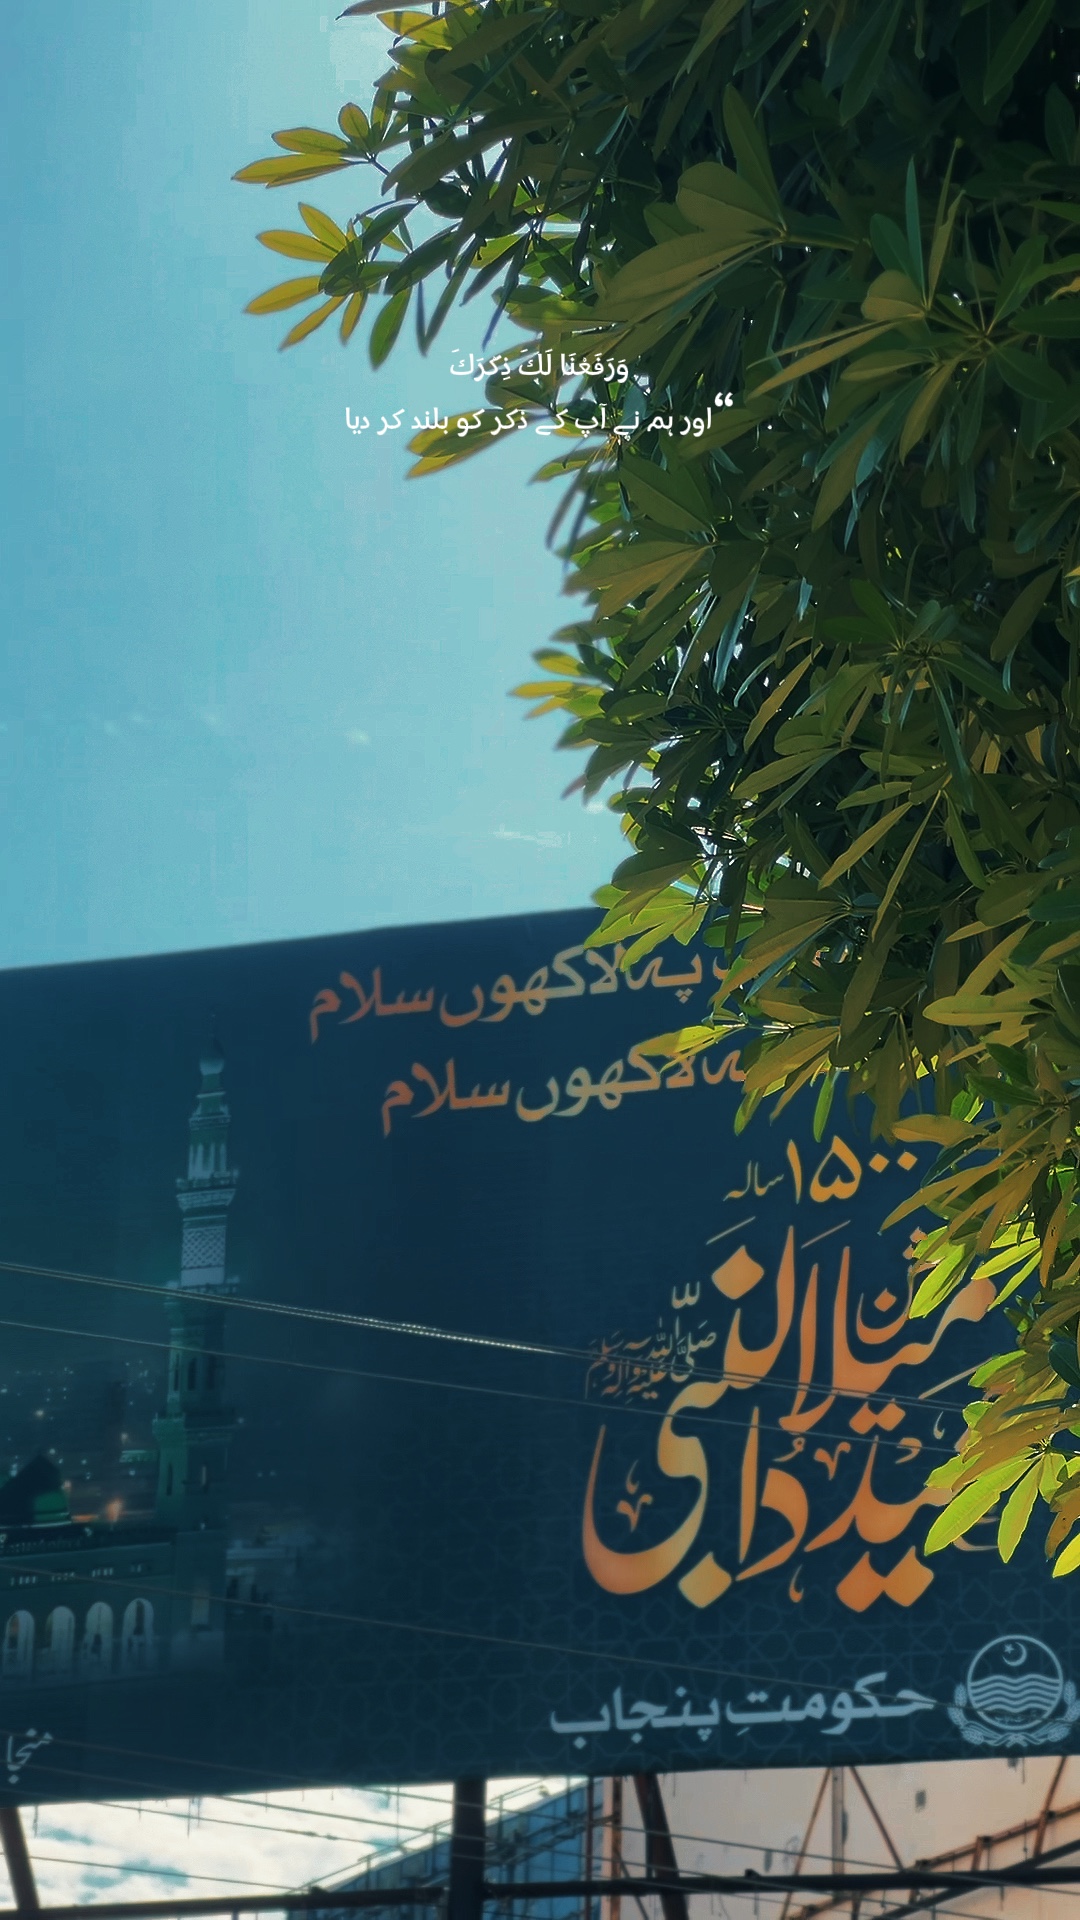 وَرَفَعْنَا لَكَ ذِكْرَكَ
“اور ہم نے آپ کے ذکر کو بلند کر دیا .
پہ لاکھوں سلام
لاکھوں سلام
۱۵۰۰ سالہ
میلاد النبیﷺ
حکومتِ پنجاب